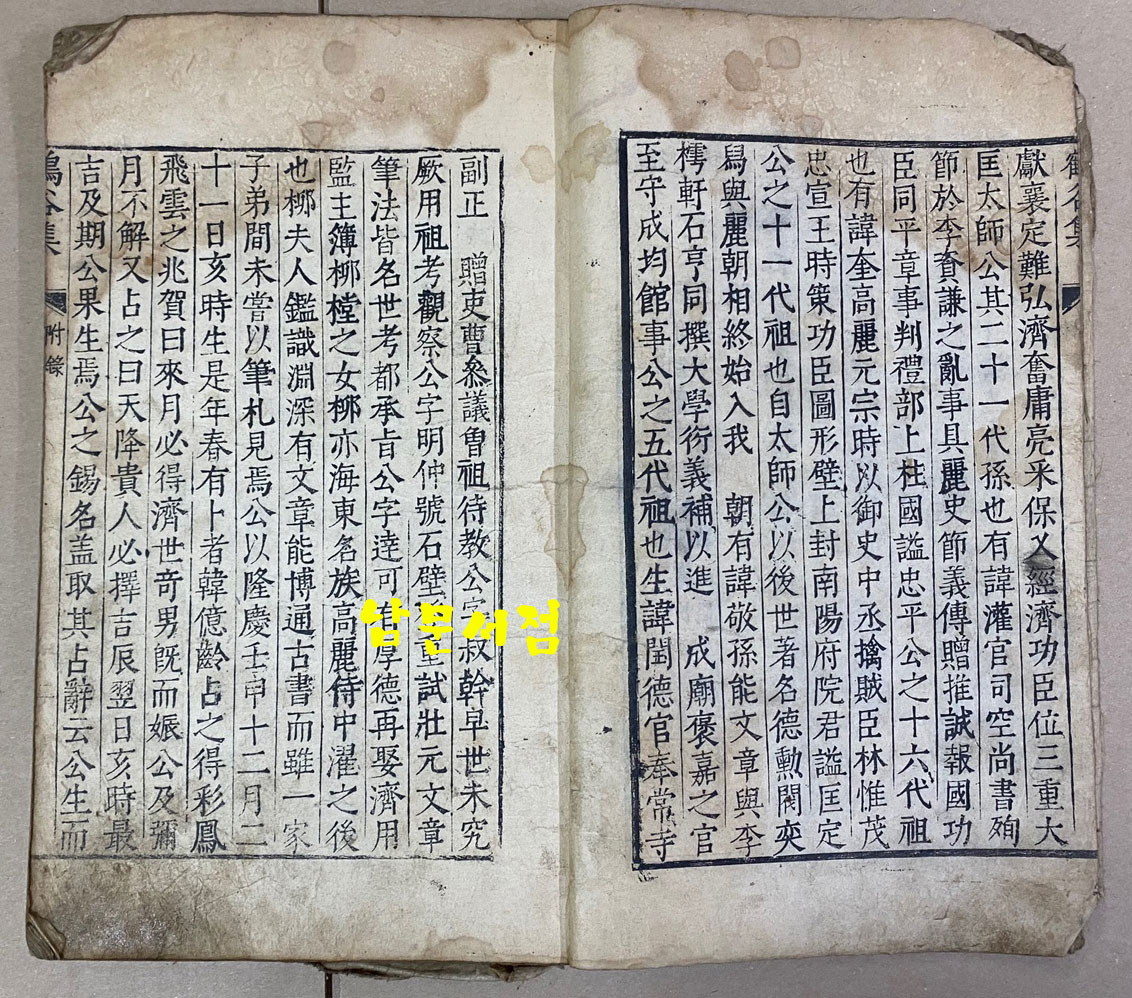 鶴谷集
獻襄定難弘濟奮庸亮采保乂經濟功臣位三重大
匡太師公其二十一代孫也有諱灌官司空尚書殉
節於李資謙之亂事具麗史節義傳贈推誠報國功
臣同平章事判禮部上柱國謚忠平公之十六代祖
也有諱奎高麗元宗時以御史中丞擒賊臣林惟茂
忠宣王時策功臣圖形壁上封南陽府院君謚匡定
公之十一代祖也自太師公以後世著名德勳閥奕
舃與麗朝相終始入我 朝有諱敬孫能文章與李
樗軒石亨同撰大學衍義補以進 成廟褒嘉之官
至守成均館事公之五代祖也生諱閏德官奉常寺
副正 贈吏曹叅議曾祖待教公字叔幹早世未究
厥用祖考觀察公字明仲號石壁重試壯元文章
筆法皆名世考都承旨公字逵可有厚德再娶濟用
監主簿柳樘之女柳亦海東名族高麗侍中濯之後
也柳夫人鑑識淵深有文章能博通古書而雖一家
子弟間未嘗以筆札見焉公以隆慶壬申十二月二
十一日亥時生是年春有卜者韓億齡占之得彩鳳
飛雲之兆賀曰來月必得濟世奇男旣而娠公及彌
月不解又占之曰天降貴人必擇吉辰翌日亥時最
吉及期公果生焉公之錫名盖取其占辭云公生而
鶴谷集 附錄
삼문서점